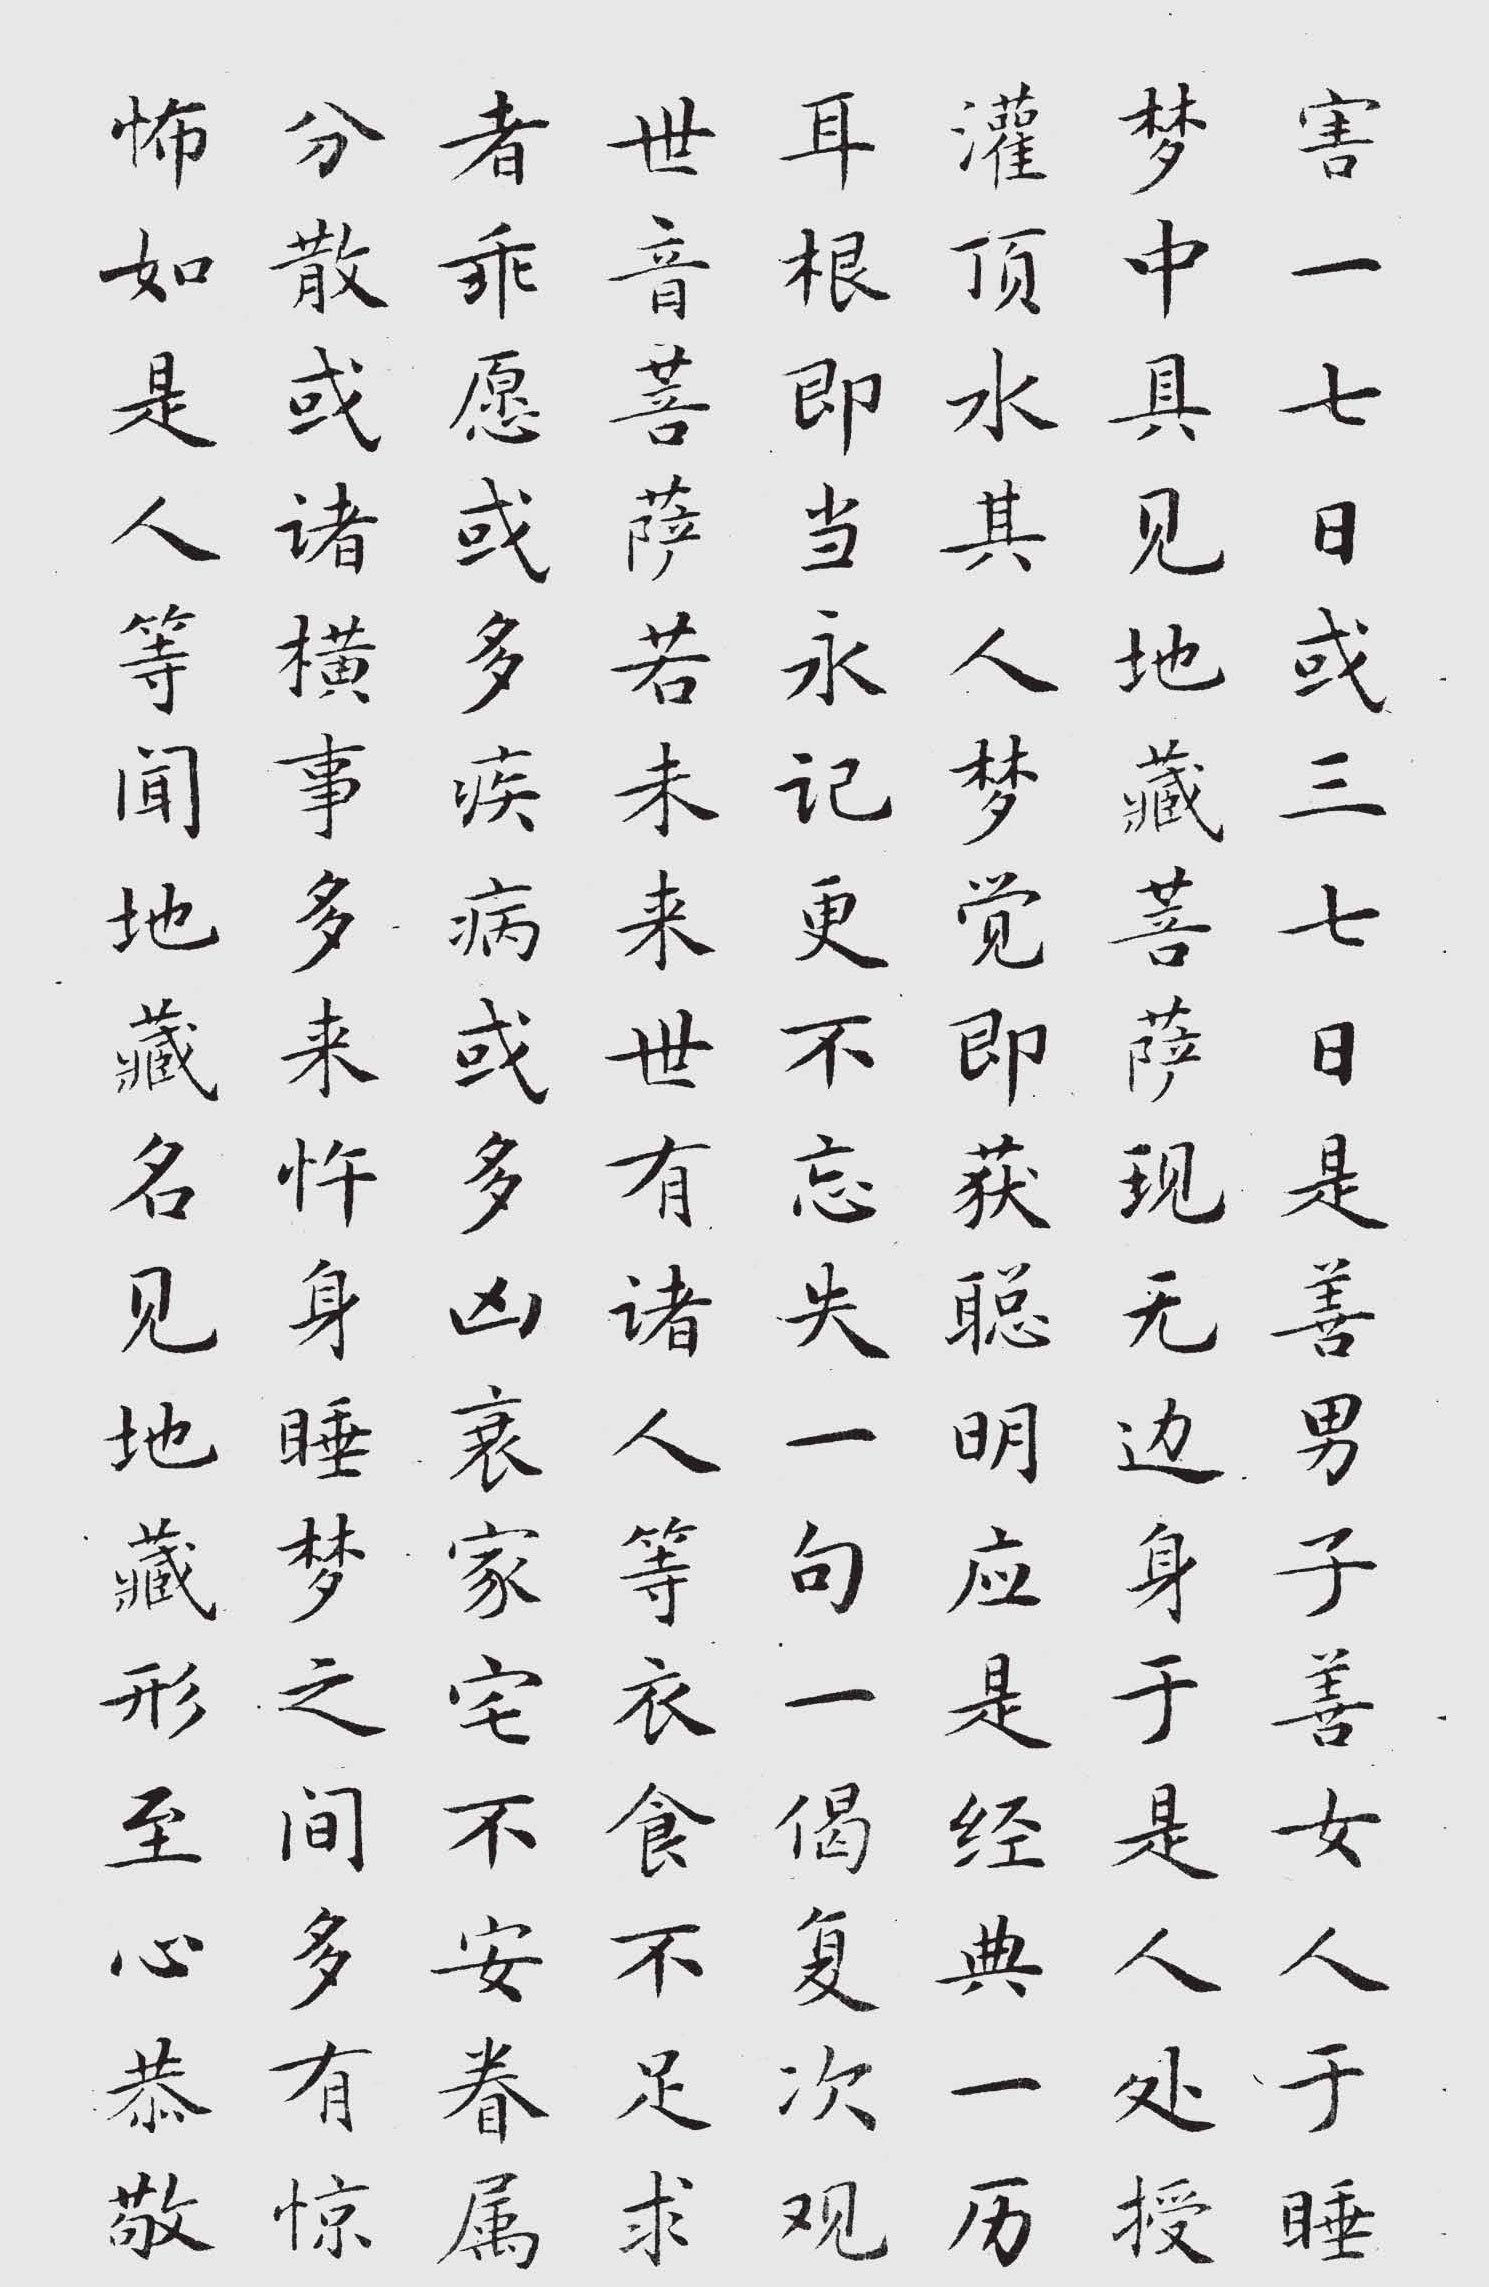 害一七日或三七日是善男子善女人于睡
梦中具见地藏菩萨现无边身于是人处授
灌顶水其人梦觉即获聪明应是经典一历
耳根即当永记更不忘失一句一偈复次观
世音菩萨若未来世有诸人等衣食不足求
者乖愿或多疾病或多凶衰家宅不安眷属
分散或诸横事多来忤身睡梦之间多有惊
怖如是人等闻地藏名见地藏形至心恭敬